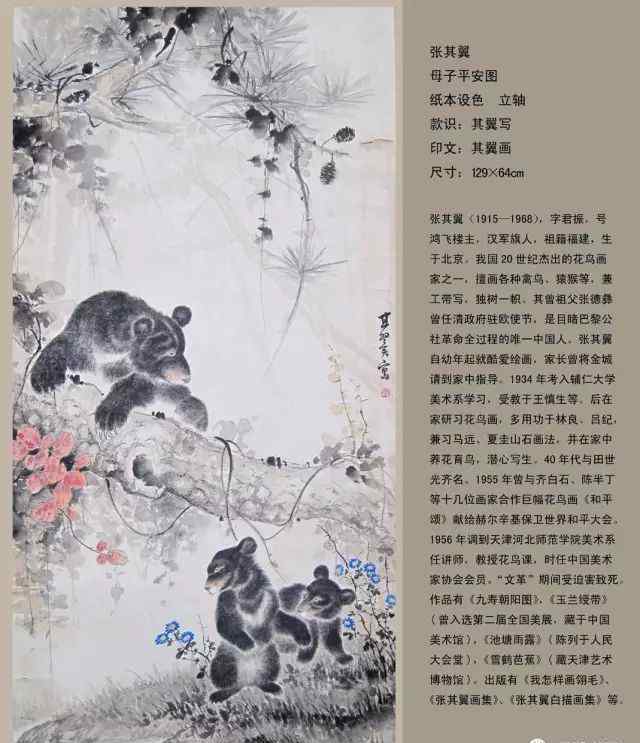 张其翼
母子平安图
纸本设色　立轴
款识：其翼写
印文：其翼画
尺寸：129×64cm
张其翼（1915—1968），字君振，号
鸿飞楼主，汉军旗人，祖籍福建，生
于北京。我国20世纪杰出的花鸟画
家之一，擅画各种禽鸟、猿猴等，兼
工带写，独树一帜。其曾祖父张德彝
曾任清政府驻欧使节，是目睹巴黎公
社革命全过程的唯一中国人。张其翼
自幼年起就酷爱绘画，家长曾将金城
请到家中指导。1934年考入辅仁大学
美术系学习，受教于王慎生等。后在
家研习花鸟画，多用功于林良、吕纪，
兼习马远、夏圭山石画法，并在家中
养花育鸟，潜心写生。40年代与田世
光齐名。1955年曾与齐白石、陈半丁
等十几位画家合作巨幅花鸟画《和平
颂》献给赫尔辛基保卫世界和平大会。
1956年调到天津河北师范学院美术系
任讲师，教授花鸟课。时任中国美术
家协会会员。“文革”期间受迫害致死。
作品有《九寿朝阳图》、《玉兰绶带》
（曾入选第二届全国美展，藏于中国
美术馆）、《池塘雨露》（陈列于人民
大会堂）、《雪鹤芭蕉》（藏天津艺术
博物馆）。出版有《我怎样画翎毛》、
《张其翼画集》、《张其翼白描画集》等。
其翼写